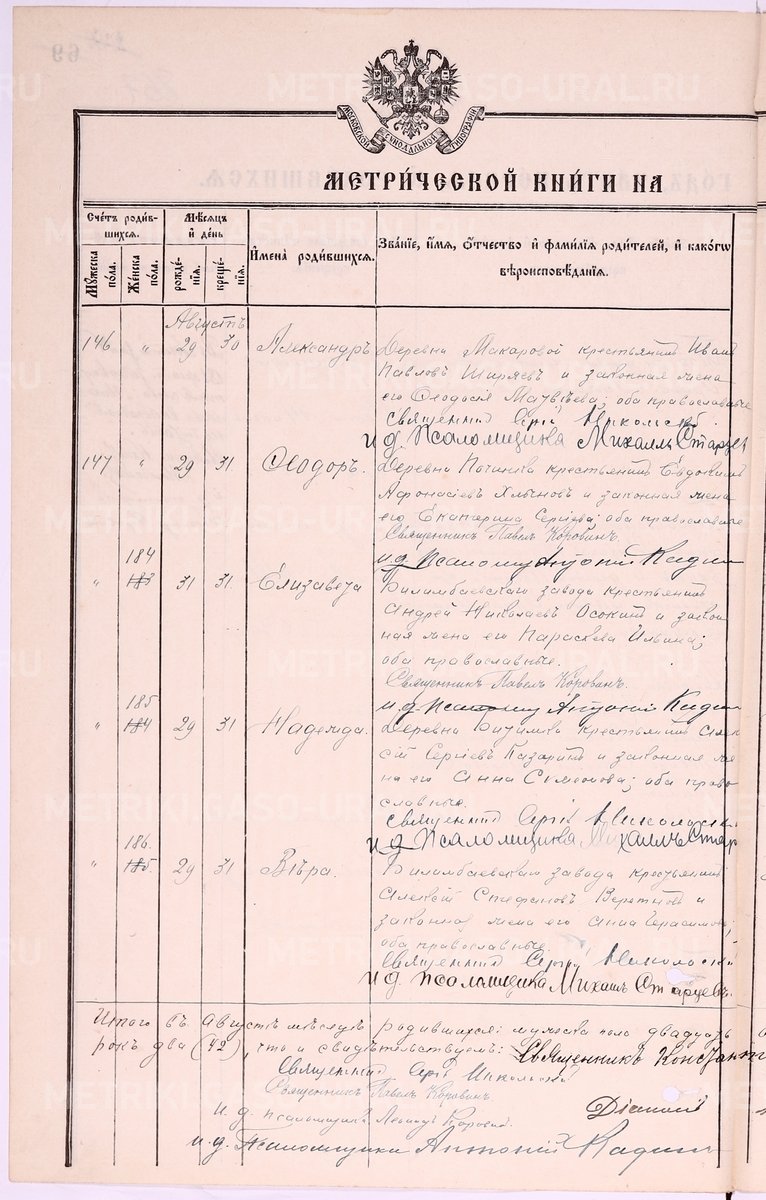 69
МОСКОВСКОЙ СѴНОДАЛЬНОЙ ТИПОГРАФІИ
МЕТРИ́ЧЕСКОЙ КНИ́ГИ НА
Сче́тъ роди́вшихся.
Мꙋжеска по́ла.
Же́нска по́ла.
Мѣ́сяцъ и҆ де́нь
рожде́нїѧ.
креще́нїѧ.
И҆мена̀ роди́вшихсѧ.
Зва́нїе, и҆́мѧ, ѻ҆́тчество и҆ фами́лїѧ роди́телей, и҆ како́гѡ вѣроисповѣ́данїѧ.
Августъ
146 " 29 30 Александръ
Деревни Макаровой крестьянинъ Иванъ
Павловъ Ширяевъ и законная жена
его Ѳеодосія Матвѣева; оба православные
Священник Сергій Никольскій
и. д. псаломщика Михаилъ Старцев
147 " 29 31 Ѳеодоръ.
Деревни Починка крестьянинъ Евдокимъ
Афонасіевъ Хлыновъ и законная жена
его Екатерина Сергіева; оба православные
Священникъ Павелъ Коровинъ.
и. д. псаломщ Антоній Кадин
" 184 183 31 31 Елизавета
Билимбаевскаго завода крестьянинъ
Андрей Николаевъ Осокинъ и закон
ная жена его Параскева Ильина;
оба православные.
Священникъ Павелъ Коровинъ.
и. д. псаломщ Антоній Кадин
" 185 184 29 31 Надежда.
Деревни Битимки крестьянинъ Алек
сій Сергіевъ Казаринъ и законная же
на его Анна Симеонова; оба право
славные.
Священник Сергій Никольскі
и. д. псаломщика Михаилъ Стар
" 186. 185. 29 31 Вѣра.
Билимбаевскаго завода крестьянинъ
Алексій Стефановъ и
законная жена его Анна Герасимова;
оба православные.
Священник Сергій Никольскій
и. д. псаломщика Михаилъ Старцевъ.
Итого въ Августѣ мѣсяцѣ родившихся: мужеска пола двадцать
рокъ два (42), что и свидѣтельствуемъ: Священникъ Констант
Священник Сергій Никольскій
Священникъ Павелъ Коровинъ
Діаконъ
и. д. псаломщика Леонидъ Коровин
и. д. Псаломщика Антоній Кадин
METRIKI.GASO-URAL.RU